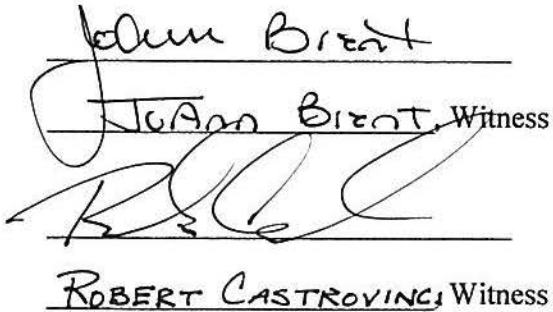 JoAnn Brent
JoAnn Brent, Witness
ROBERT CASTROVINCI Witness